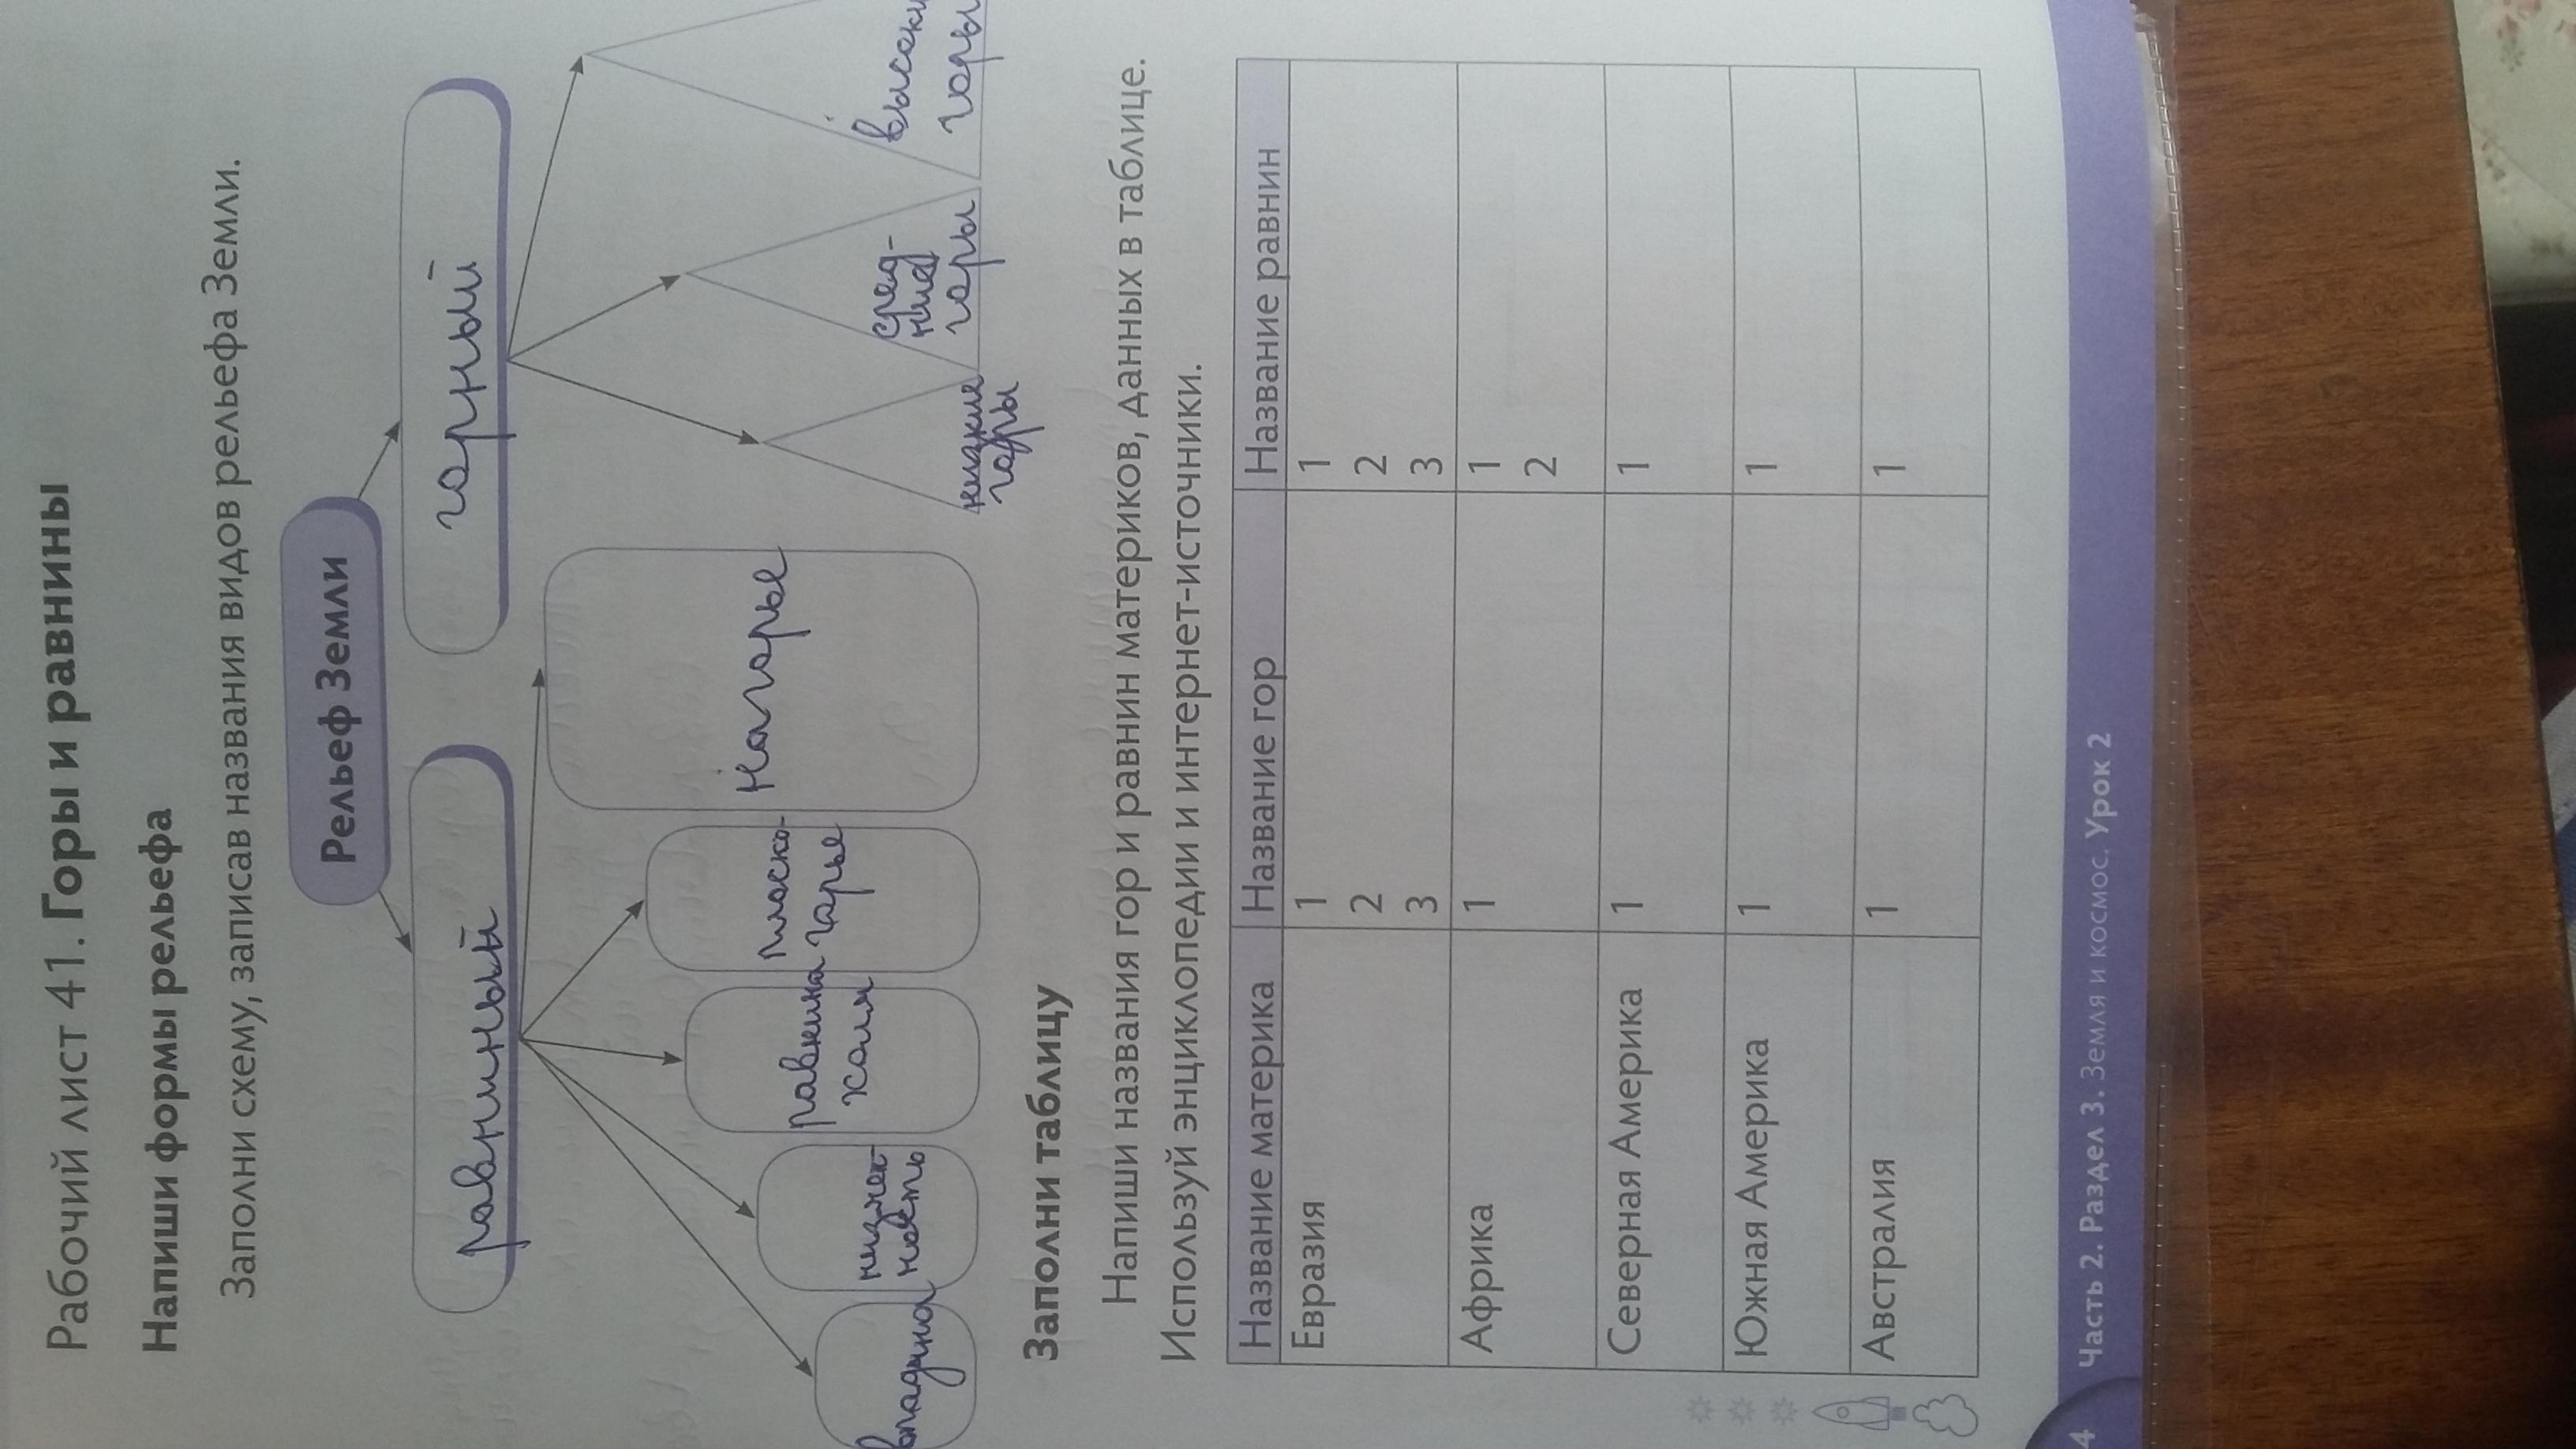 Рабочий лист 41. Горы и равнины
Напиши формы рельефа
Заполни схему, записав названия видов рельефа Земли.
Рельеф Земли
равнинный
горный
впадина
низмен-
ность
равнина
холм
плоско-
горье
Нагорье
низкие
горы
сред-
ние
горы
высоки
горы
Заполни таблицу
Напиши названия гор и равнин материков, данных в таблице.
Используй энциклопедии и интернет-источники.
Название материка Название гор Название равнин
Евразия 1 1
2 2
3 3
Африка 1 1
2
Северная Америка 1 1
Южная Америка 1 1
Австралия 1 1
4 Часть 2. Раздел 3. Земля и космос. Урок 2